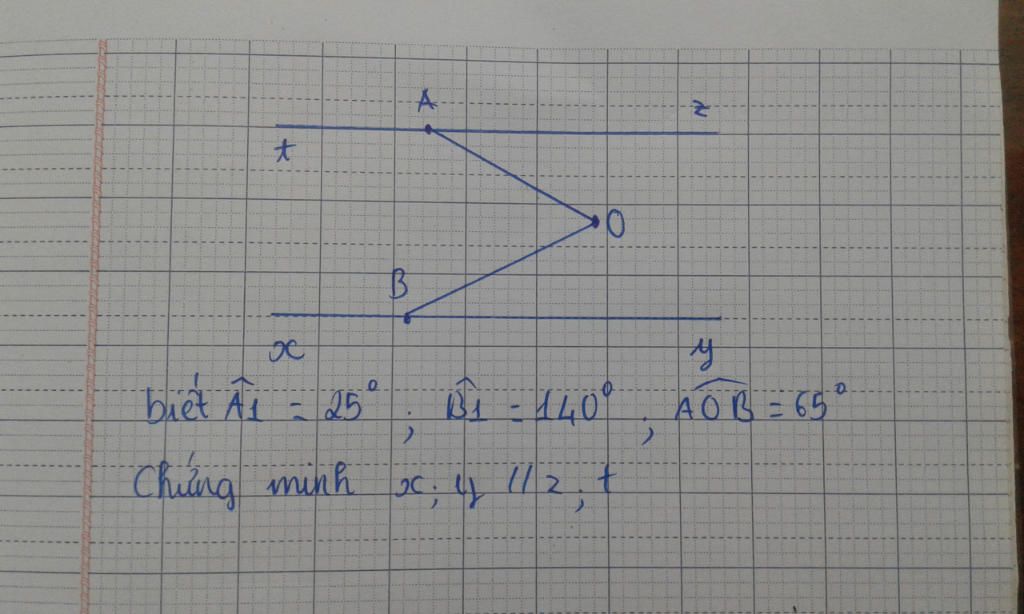 A
z
t
O
B
x
y
biết Â1 = 25° ; B̂1 = 140° ; AOB = 65°
Chứng minh x; y // z; t